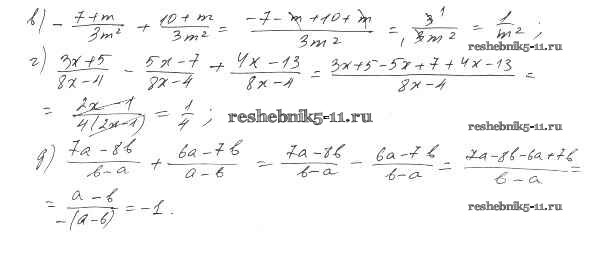 в) - (7+m)/(3m²) + (10+m)/(3m²) = (-7-m+10+m)/(3m²) = 3¹/(₁3m²) = 1/m² ;
reshebnik5-11.ru
г) (3x+5)/(8x-4) - (5x-7)/(8x-4) + (4x-13)/(8x-4) = (3x+5-5x+7+4x-13)/(8x-4) =
= (2x-1)/(4(2x-1)) = 1/4 ; reshebnik5-11.ru
reshebnik5-11.ru
д) (7a-8b)/(b-a) + (6a-7b)/(a-b) = (7a-8b)/(b-a) - (6a-7b)/(b-a) = (7a-8b-6a+7b)/(b-a) =
= (a-b)/(-(a-b)) = -1 .
reshebnik5-11.ru